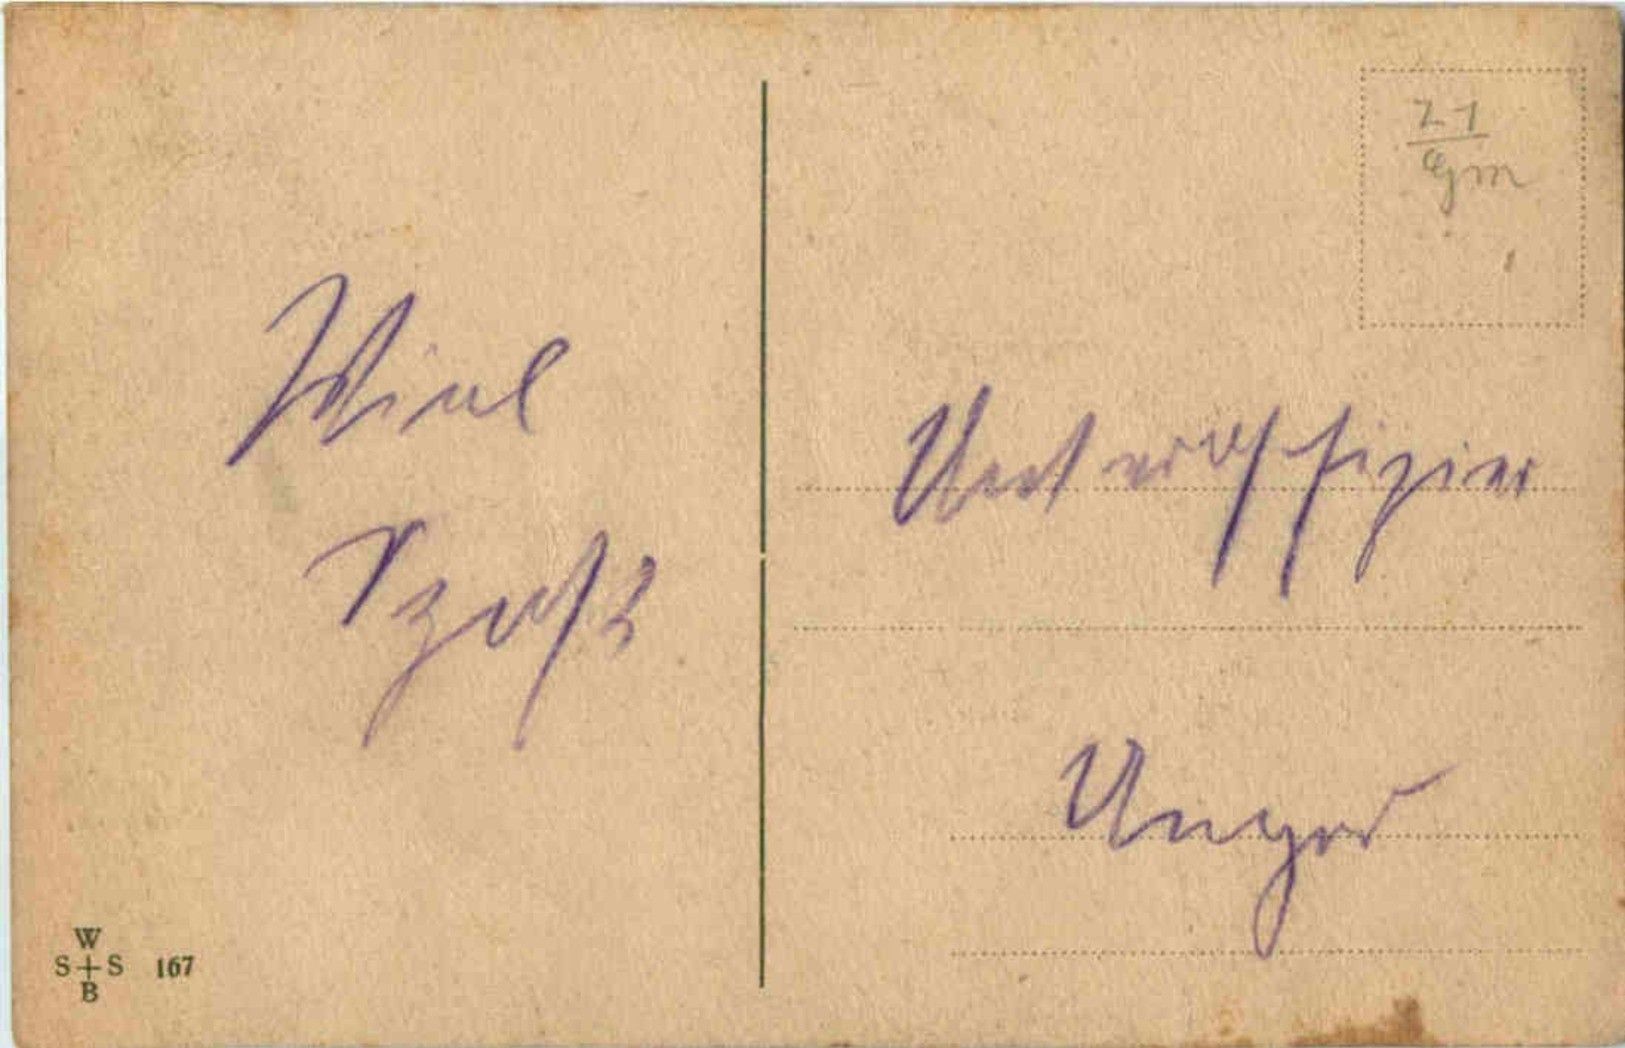 Viel
Spaß
Unteroffizier
Unger
W
S S 167
B